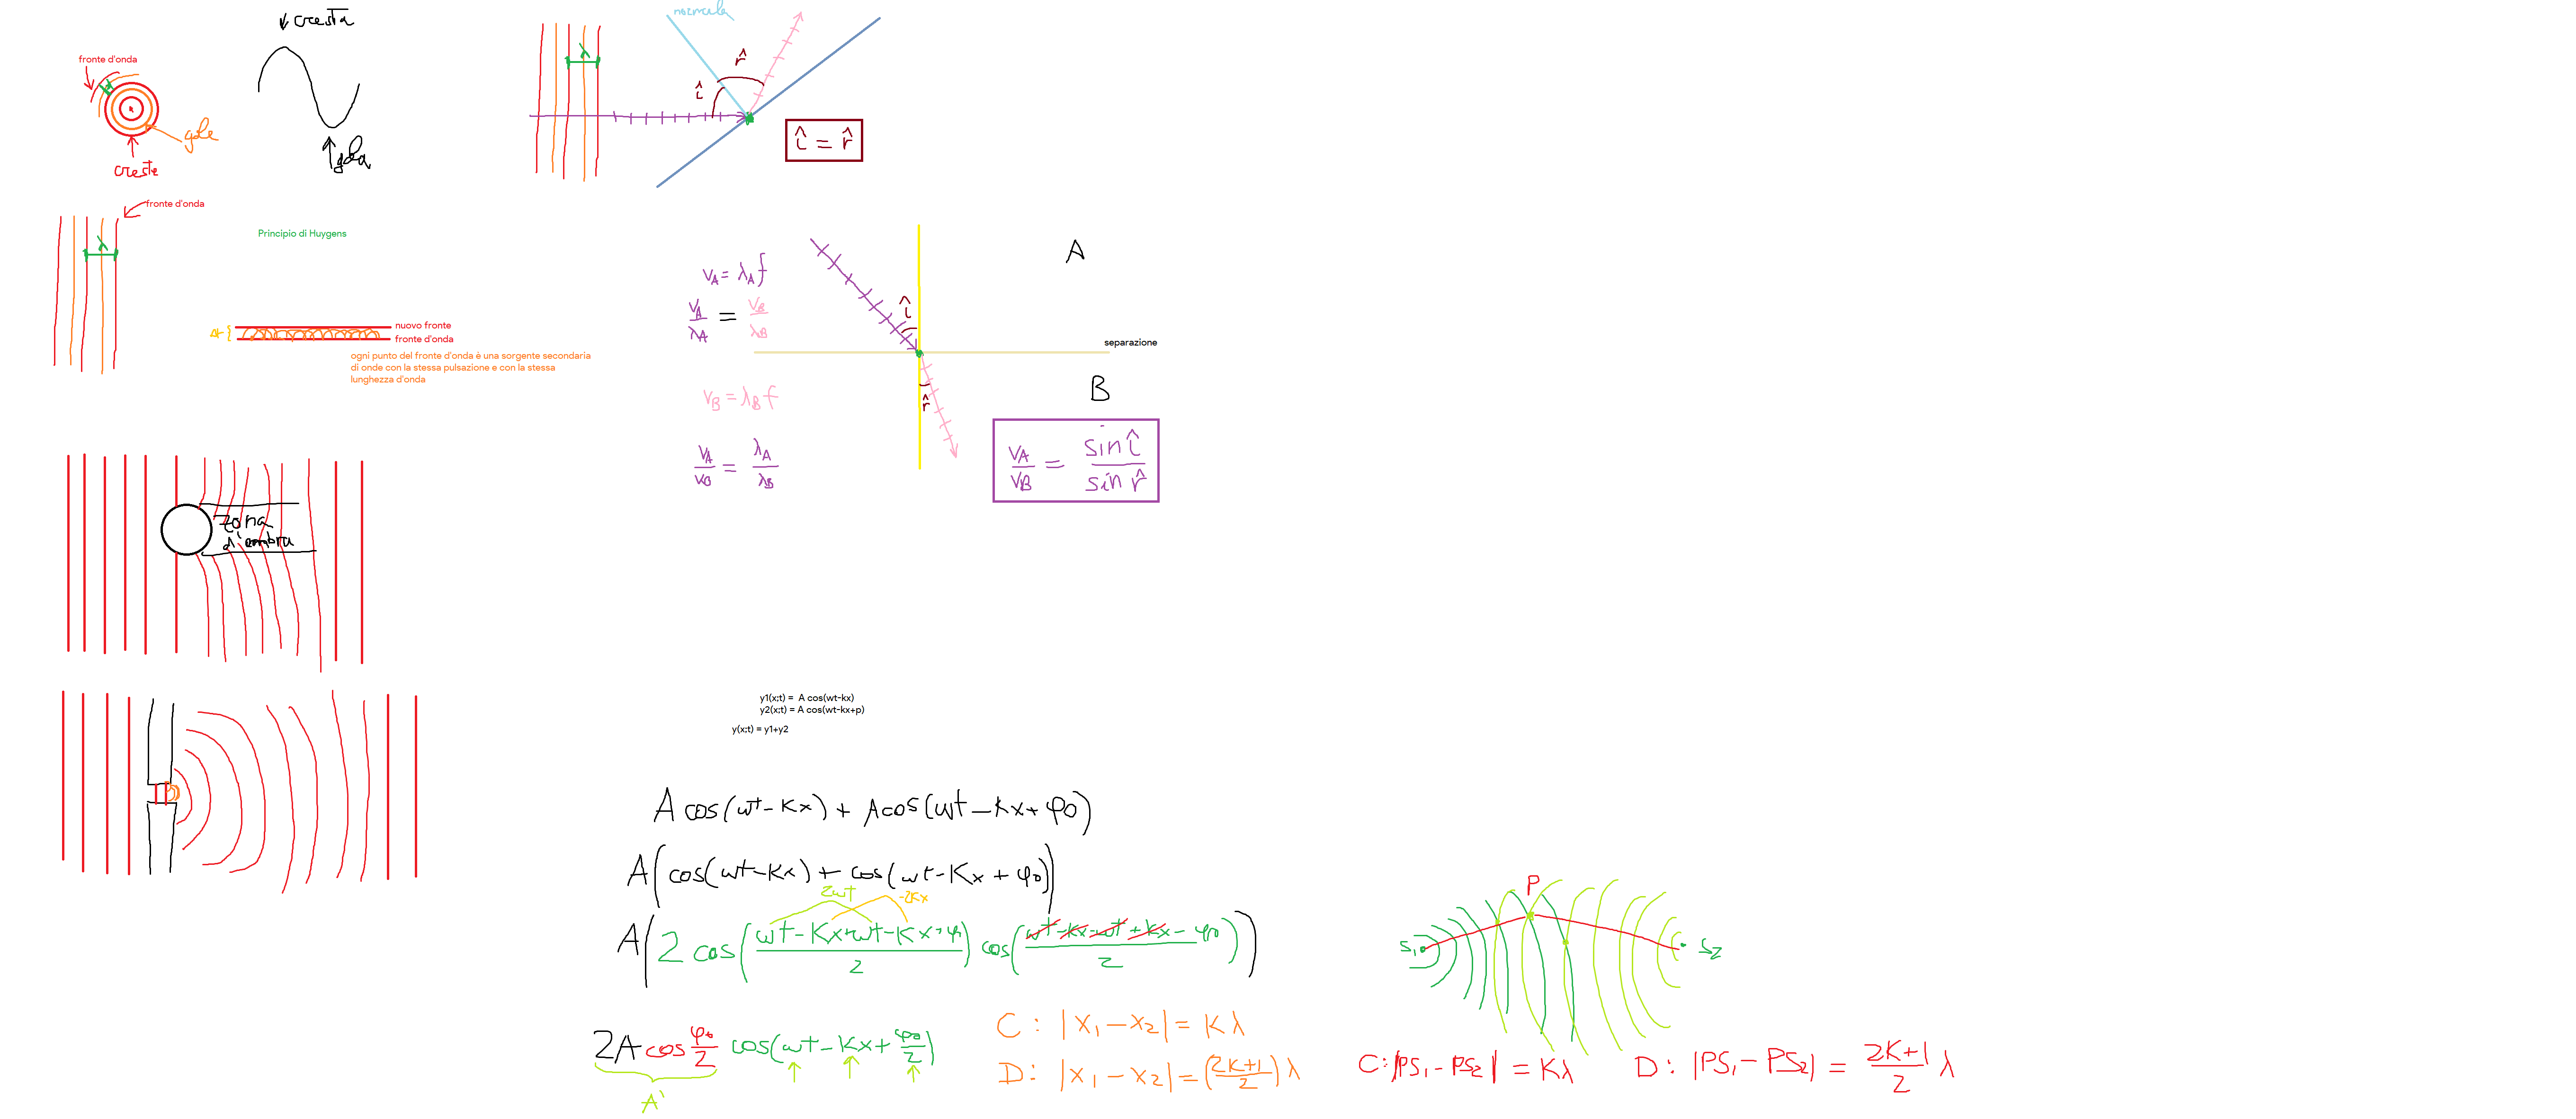 cresta
fronte d'onda
λ
gole
creste
gola
fronte d'onda
λ
Principio di Huygens
Δt
nuovo fronte
fronte d'onda
ogni punto del fronte d'onda è una sorgente secondaria
di onde con la stessa pulsazione e con la stessa
lunghezza d'onda
zona
d'ombra
normale
λ
r̂
î
î = r̂
A
v_A = λ_A f
v_A/λ_A = v_B/λ_B
î
separazione
B
v_B = λ_B f
r̂
v_A/v_B = λ_A/λ_B
v_A/v_B = sin î/sin r̂
y1(x;t) = A cos(wt-kx)
y2(x;t) = A cos(wt-kx+p)
y(x;t) = y1+y2
A cos(ωt-Kx) + A cos(ωt-Kx+φ0)
A(cos(ωt-Kx) + cos(ωt-Kx+φ0))
2ωt
-2Kx
A(2 cos((ωt-Kx+ωt-Kx+φ)/2) cos((ωt-Kx-ωt+Kx-φ0)/2))
2A cos φ0/2 cos(ωt-Kx+φ0/2)
A'
C: |x1-x2| = Kλ
D: |x1-x2| = ((2K+1)/2) λ
P
S1
S2
C: |PS1-PS2| = Kλ
D: |PS1-PS2| = (2K+1)/2 λ